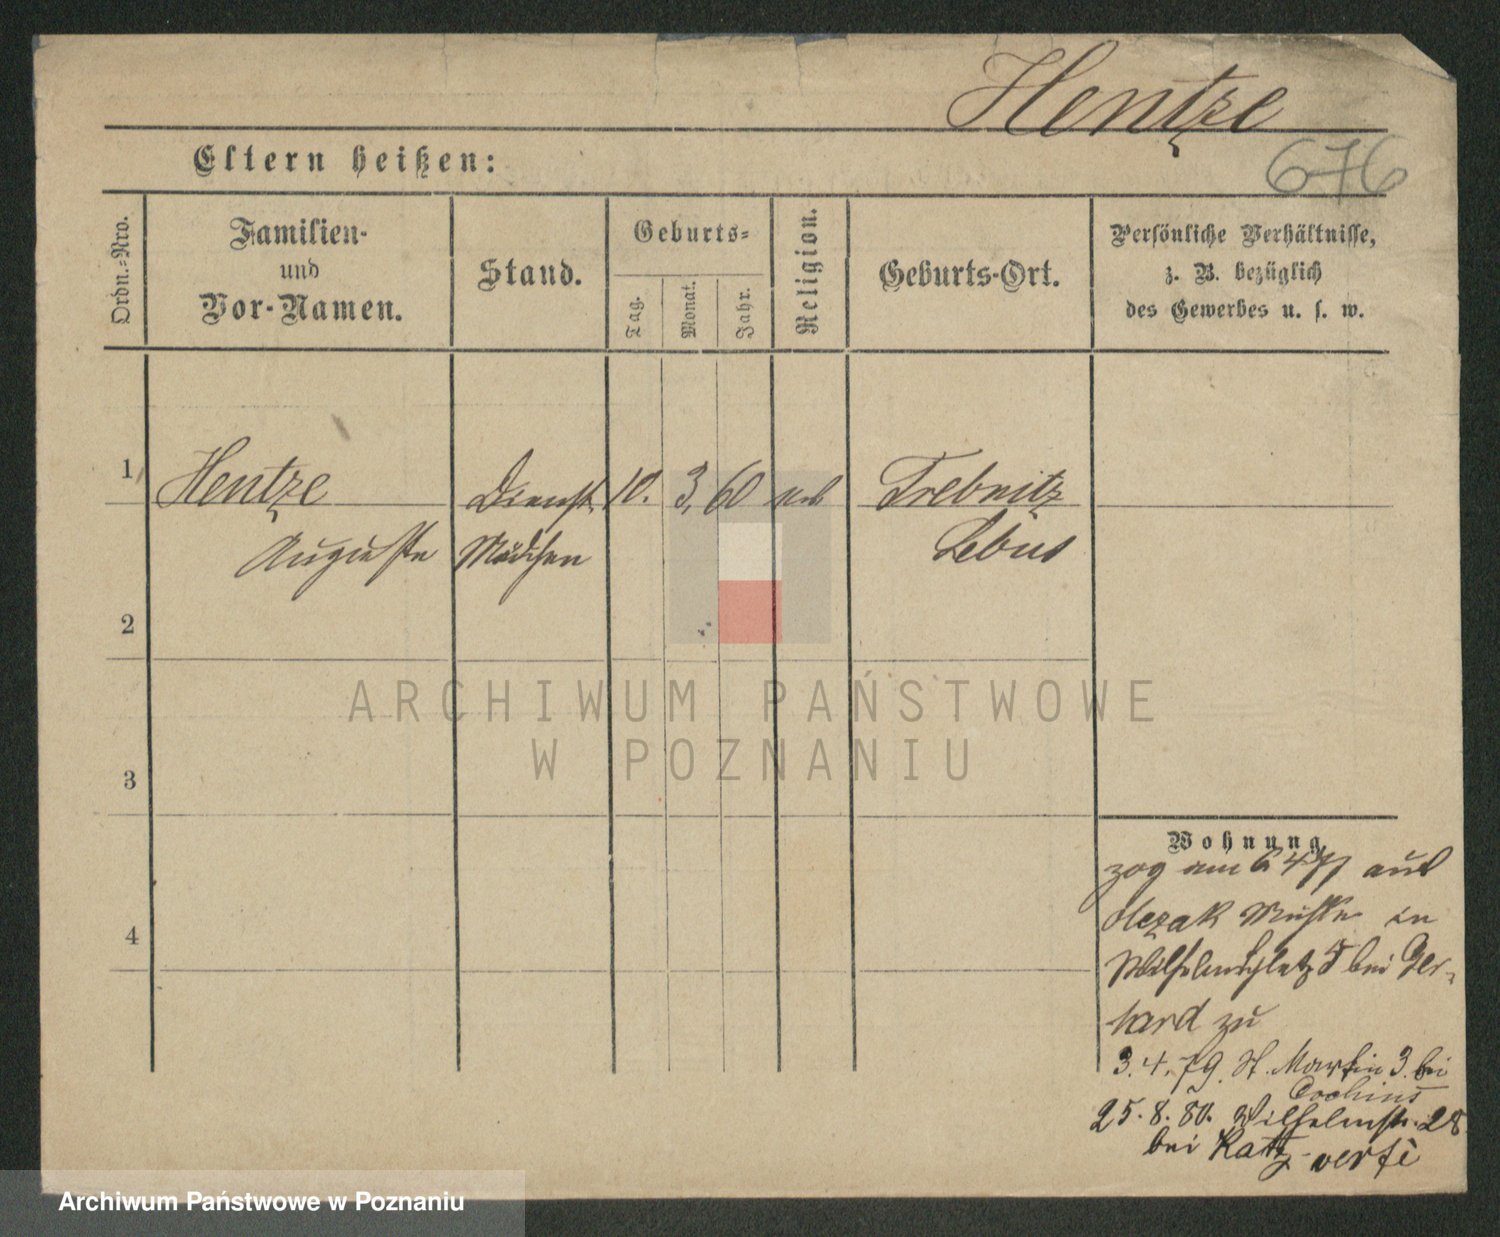 Hentze
676
Eltern heißen:
Ordn.-Nro.
Familien-
und
Vor-Namen.
Stand.
Geburts-
Tag.
Monat.
Jahr.
Religion.
Geburts-Ort.
Persönliche Verhältnisse,
z. B. bezüglich
des Gewerbes u. s. w.
1
Hentze
Dienst
10.
3.
60
Trebnitz
Auguste
Mädchen
Lebus
2
ARCHIWUM PAŃSTWOWE
W POZNANIU
3
Wohnung
zog am 6 4 77 aus
in
Wilhelmsplatz 5 bei Ger-
hard zu
4
3.4.79. St. Martin 3. bei
25.8.80. Wilhelmstr. 28
bei
Archiwum Państwowe w Poznaniu